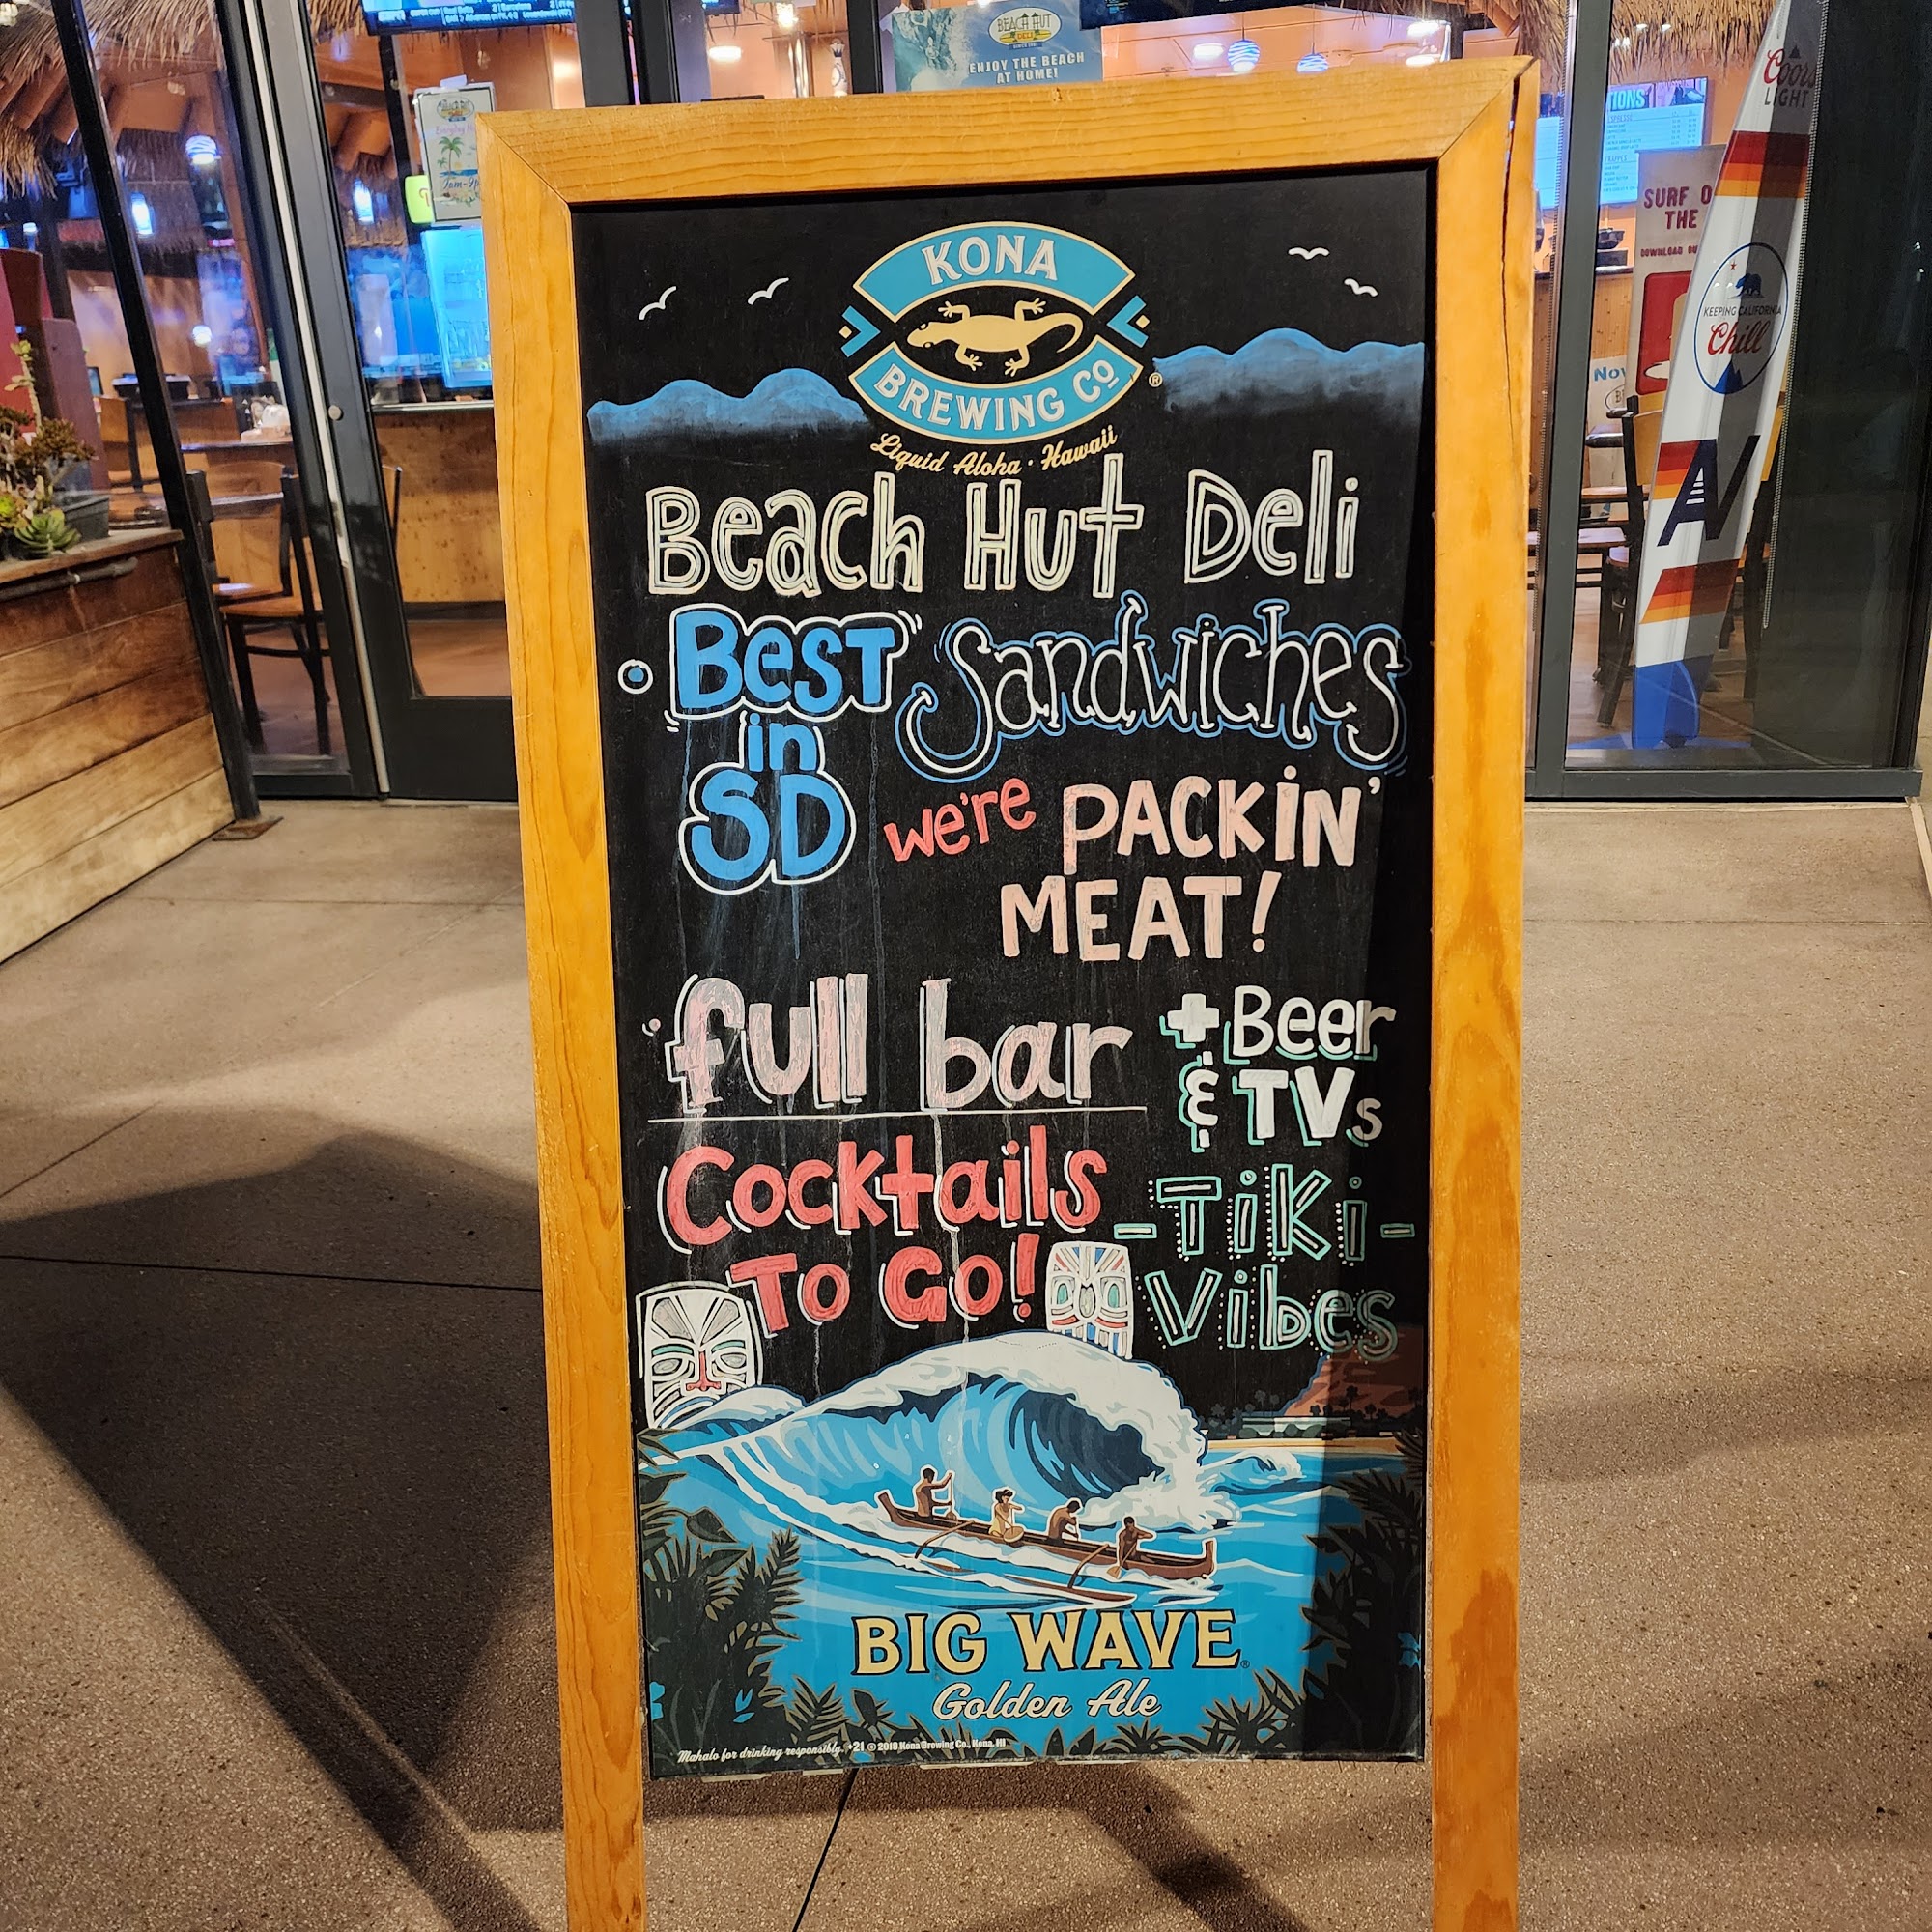 BEACH HUT
ENJOY THE BEACH
AT HOME!
Coors
LIGHT
SURF O
THE
DOWNLOAD OU
KEEPING CALIFORNIA
Chill
KONA
BREWING Co
®
Liquid Aloha · Hawaii
Beach Hut Deli
Best Sandwiches
in
SD we're PACKIN'
MEAT!
full bar + Beer
& TVs
Cocktails -Tiki-
To Go! Vibes
BIG WAVE®
Golden Ale
Mahalo for drinking responsibly. +21 © 2018 Kona Brewing Co., Kona, HI